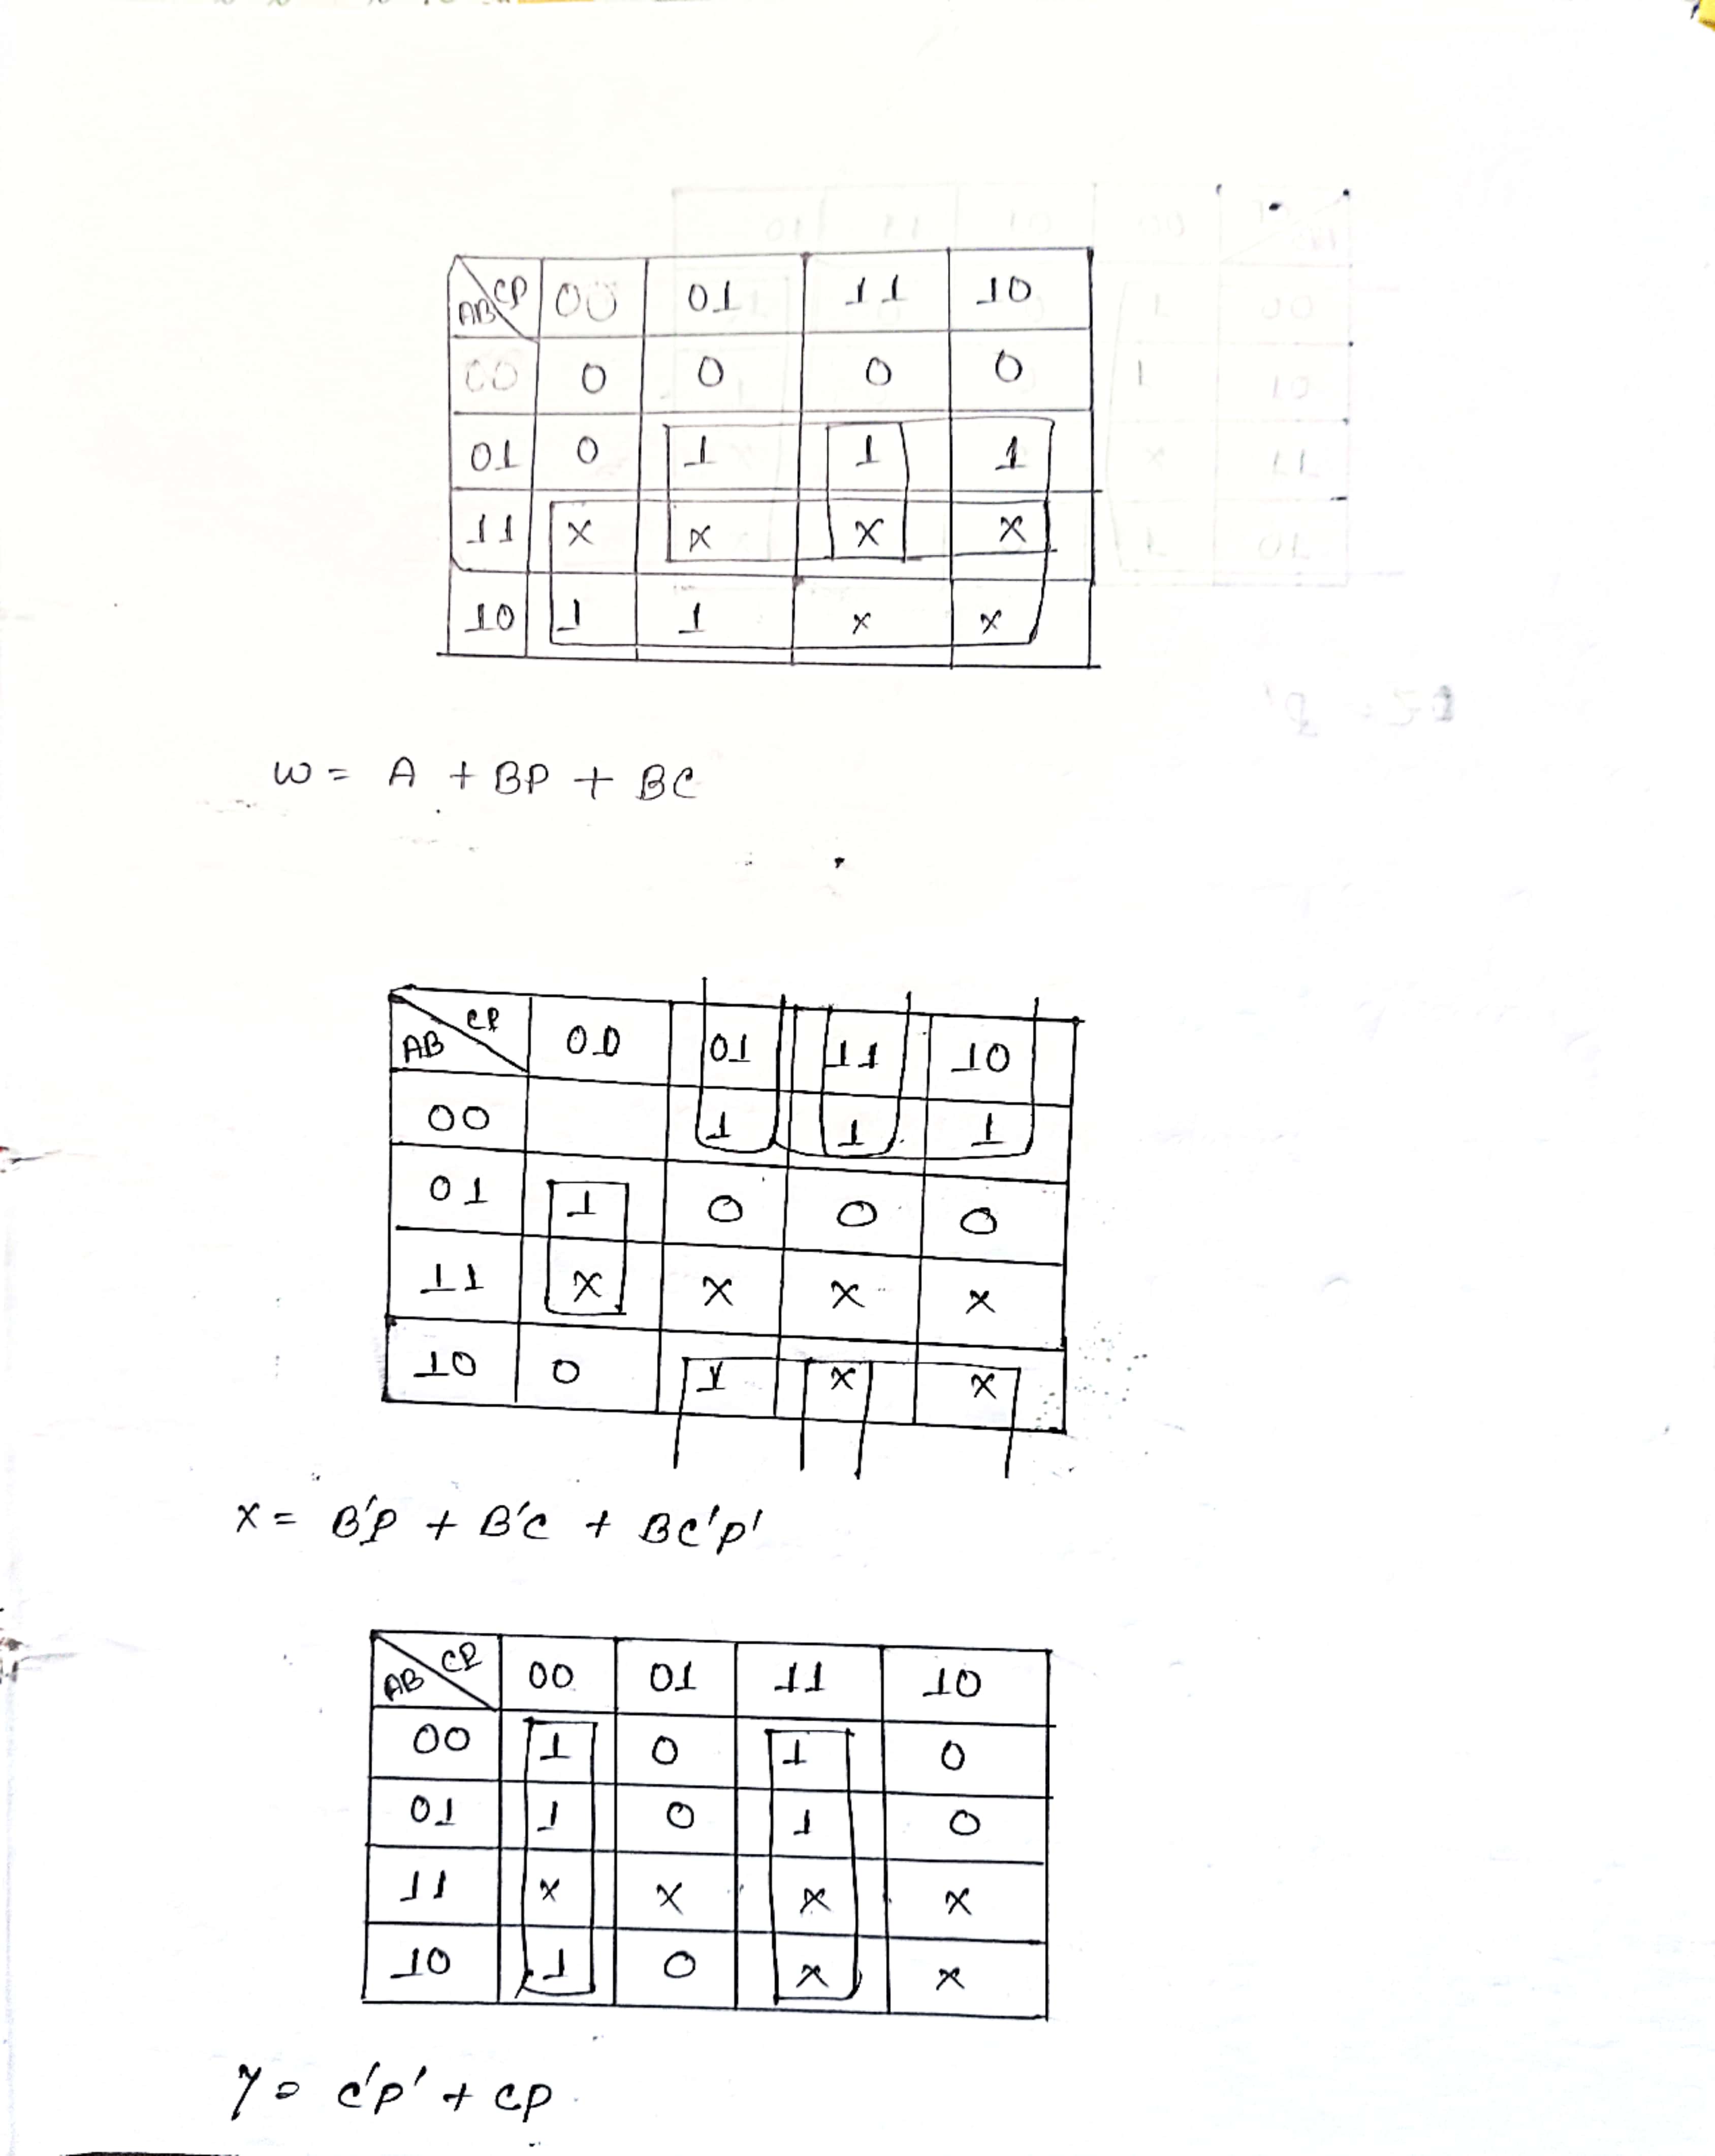 AB CP 00 01 11 10
00 0 0 0 0
01 0 1 1 1
11 X X X X
10 1 1 X X
W = A + BP + BC
AB CP 00 01 11 10
00 1 1 1
01 1 0 0 0
11 X X X X
10 0 1 X X
X = B'P + B'C + BC'P'
AB CP 00 01 11 10
00 1 0 1 0
01 1 0 1 0
11 X X X X
10 1 0 X X
Y = C'P' + CP